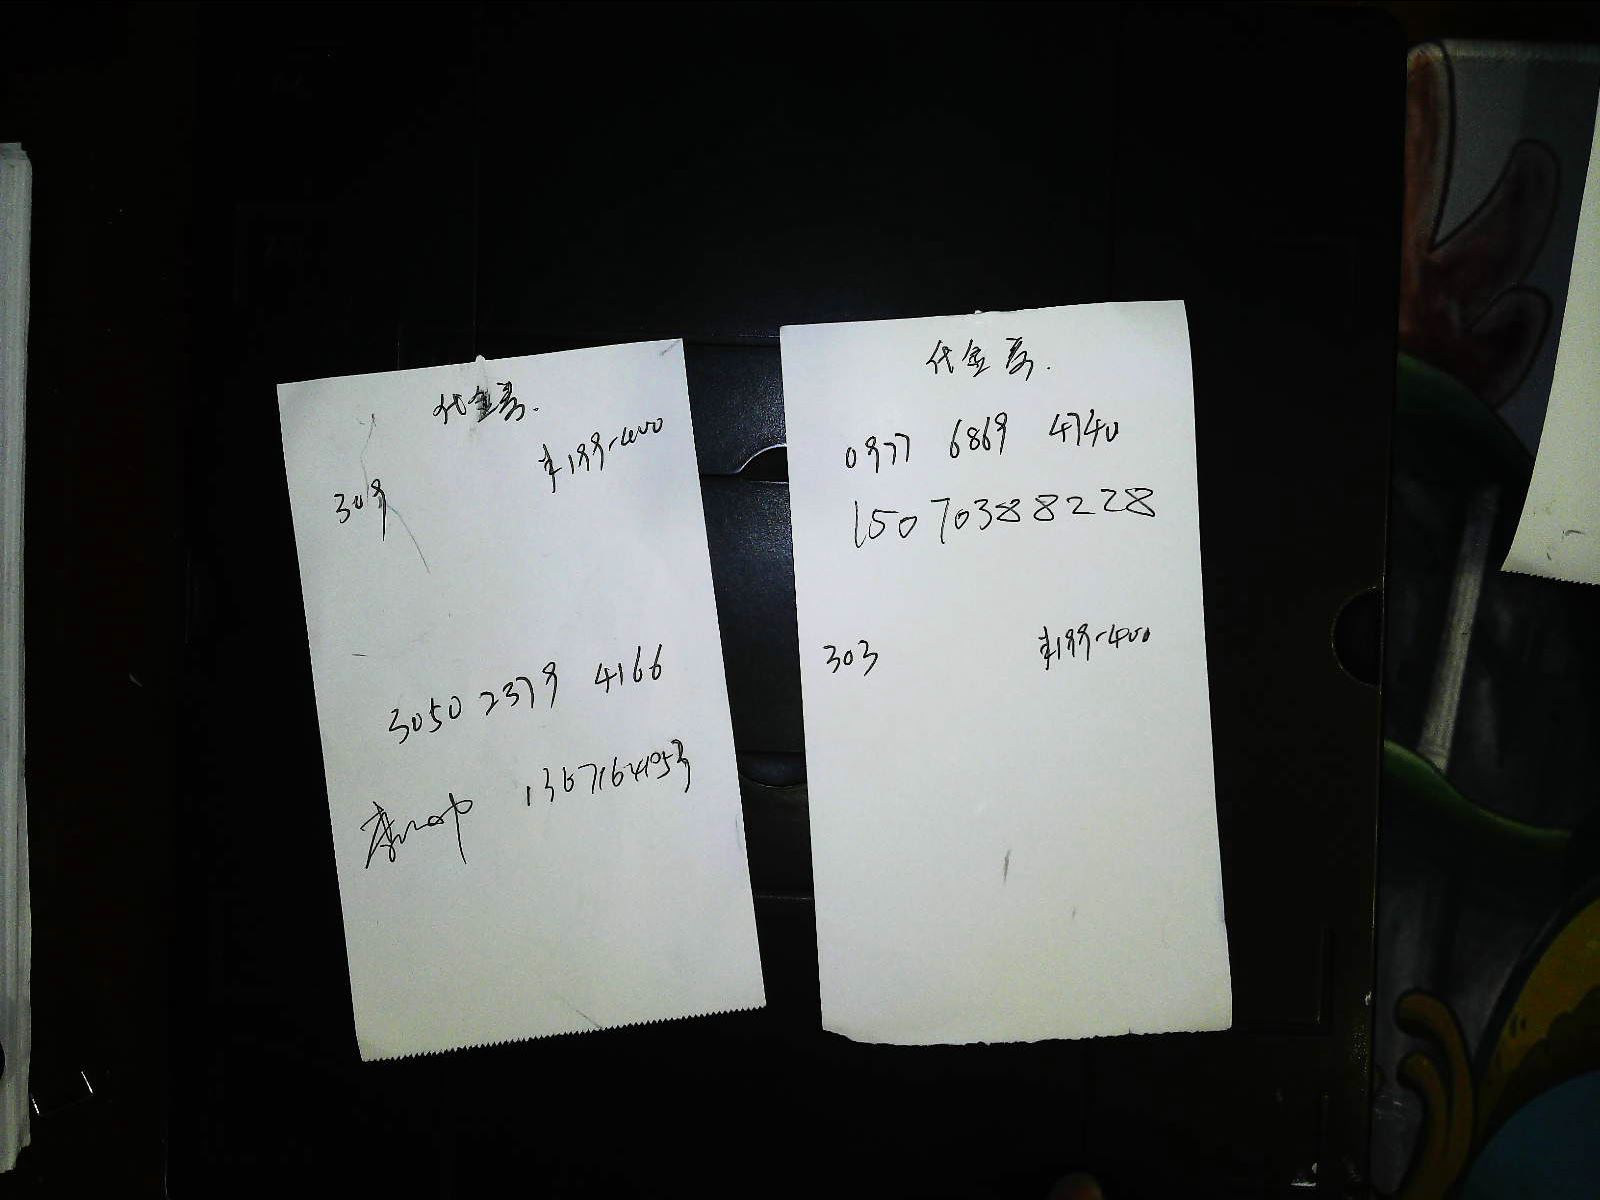 代金券.
309 ¥199-400
3050 2379 4166
13671641053
代金券.
0977 6869 4740
15070388228
303 ¥199-400